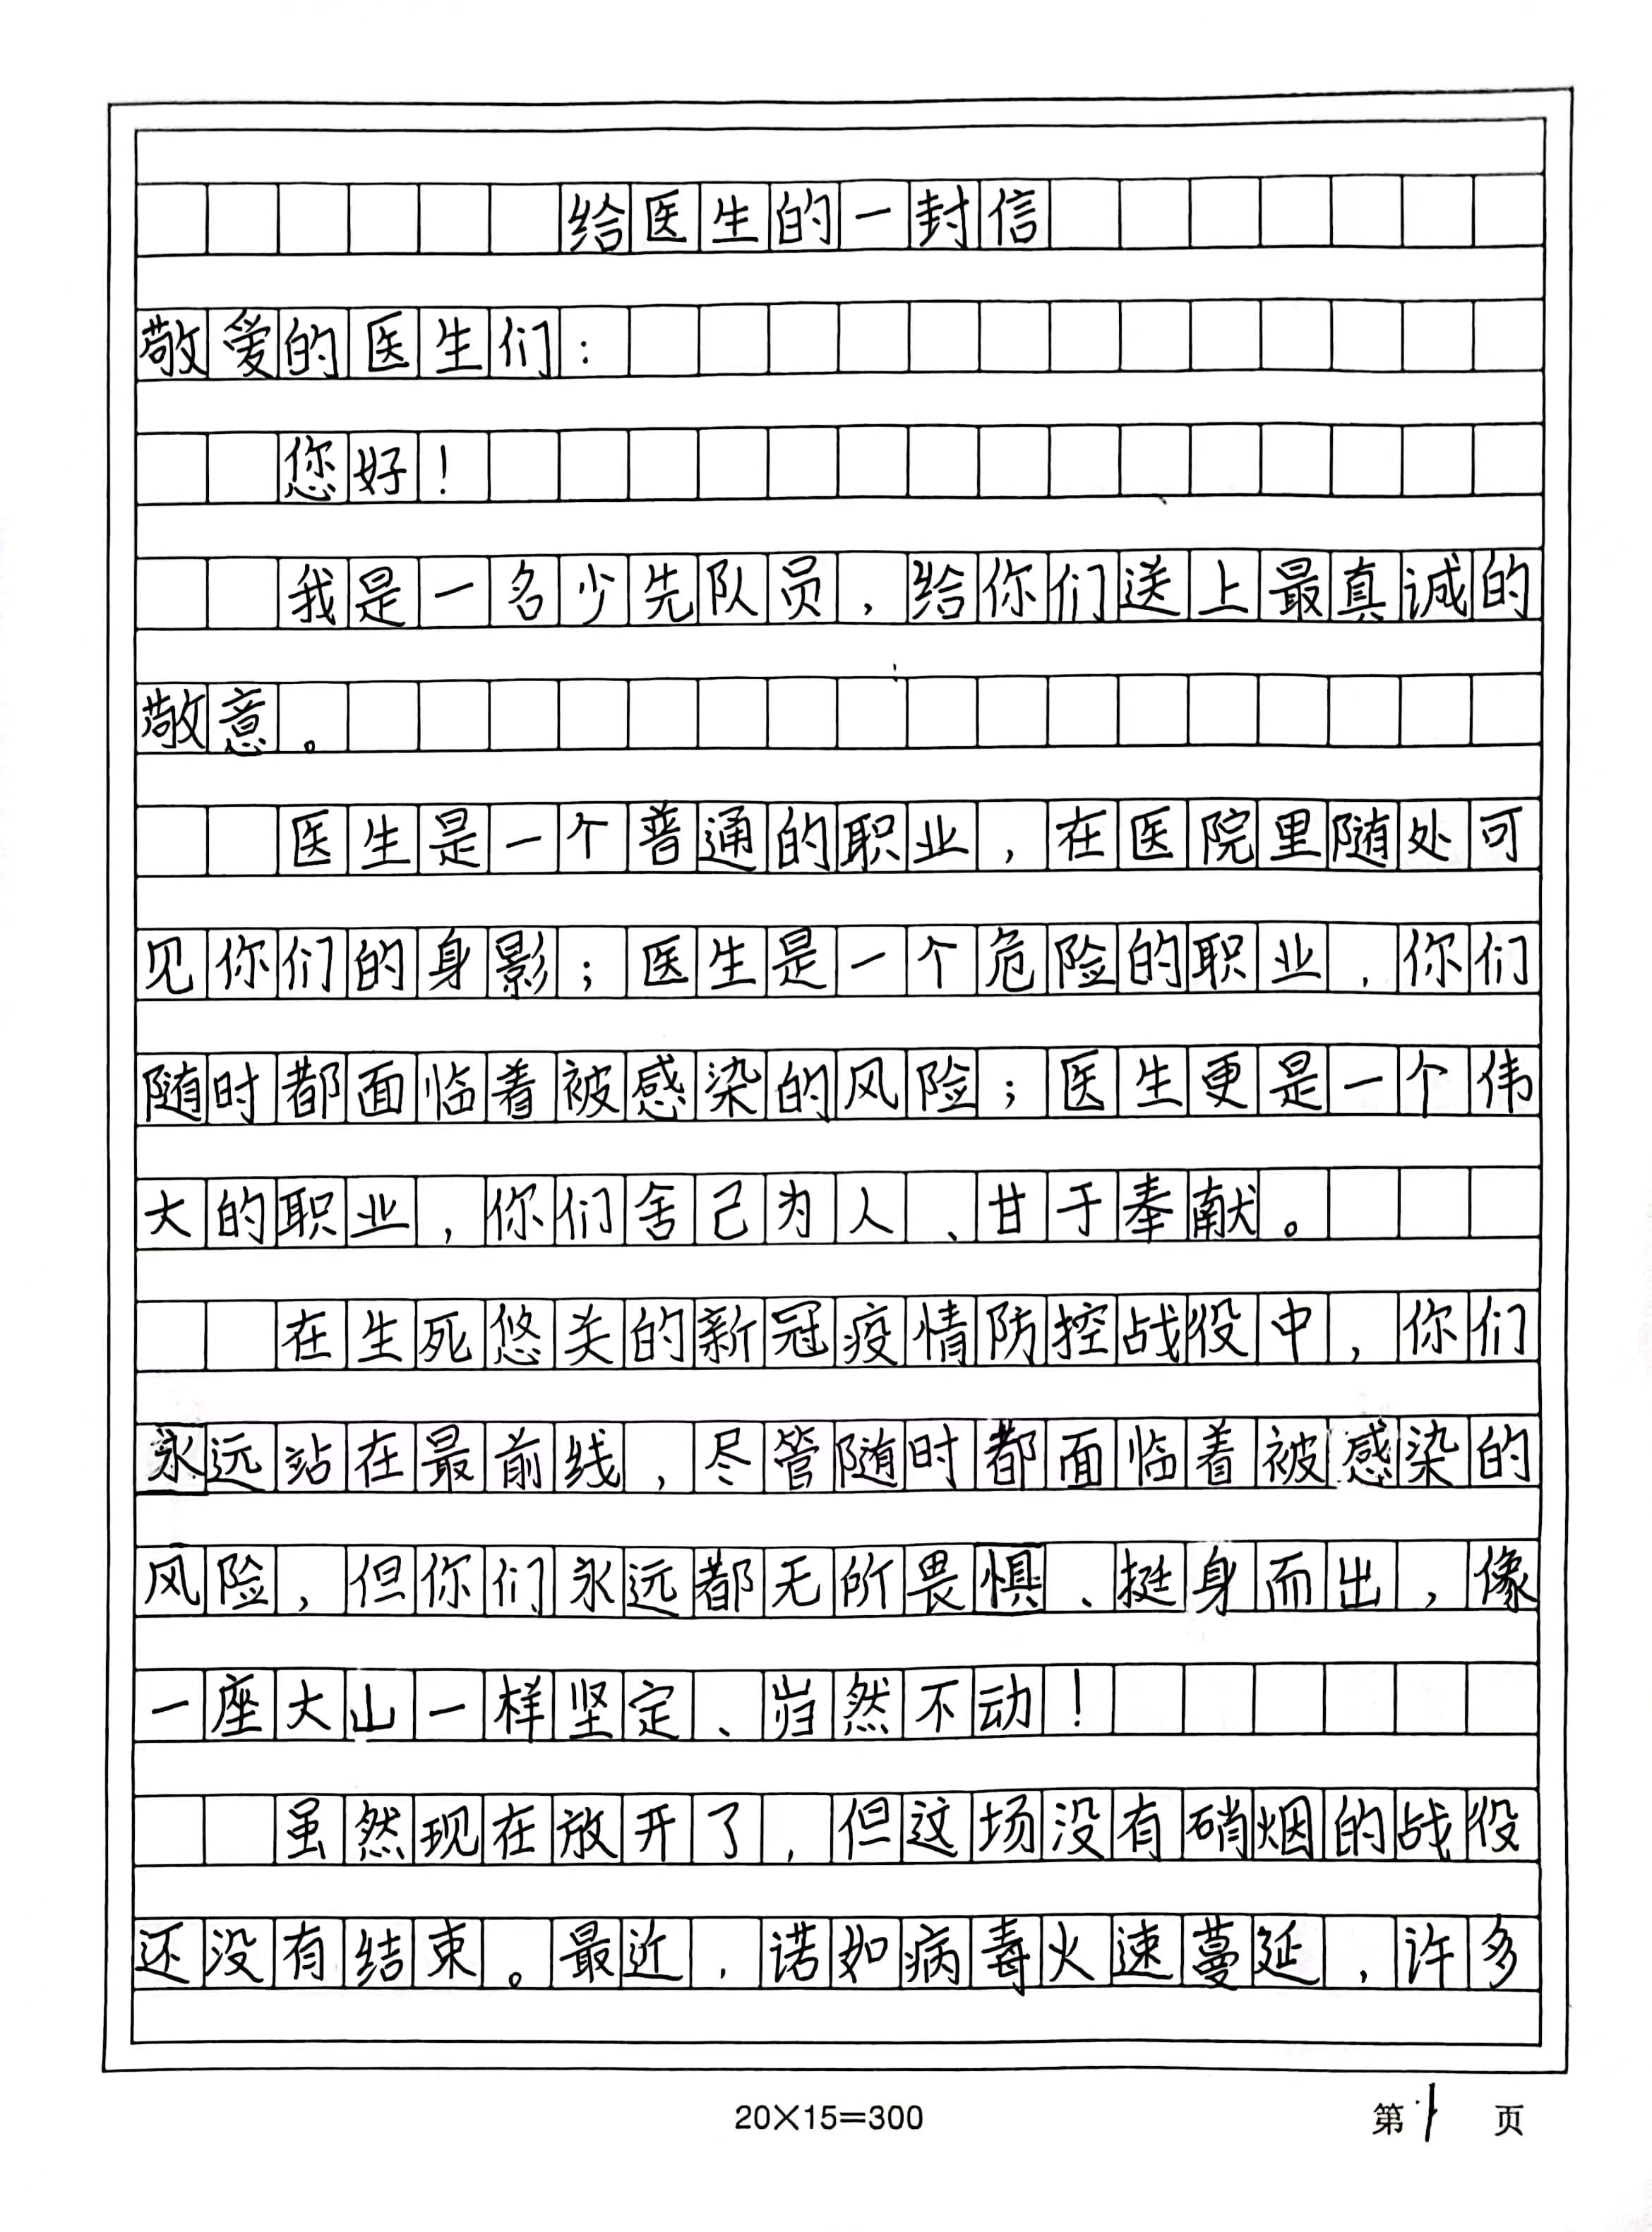 给医生的一封信
敬爱的医生们：
您好！
我是一名少先队员，给你们送上最真诚的
敬意。
医生是一个普通的职业，在医院里随处可
见你们的身影；医生是一个危险的职业，你们
随时都面临着被感染的风险；医生更是一个伟
大的职业，你们舍己为人、甘于奉献。
在生死悠关的新冠疫情防控战役中，你们
永远站在最前线，尽管随时都面临着被感染的
风险，但你们永远都无所畏惧、挺身而出，像
一座大山一样坚定、岿然不动！
虽然现在放开了，但这场没有硝烟的战役
还没有结束。最近，诺如病毒火速蔓延，许多
20×15=300
第1页